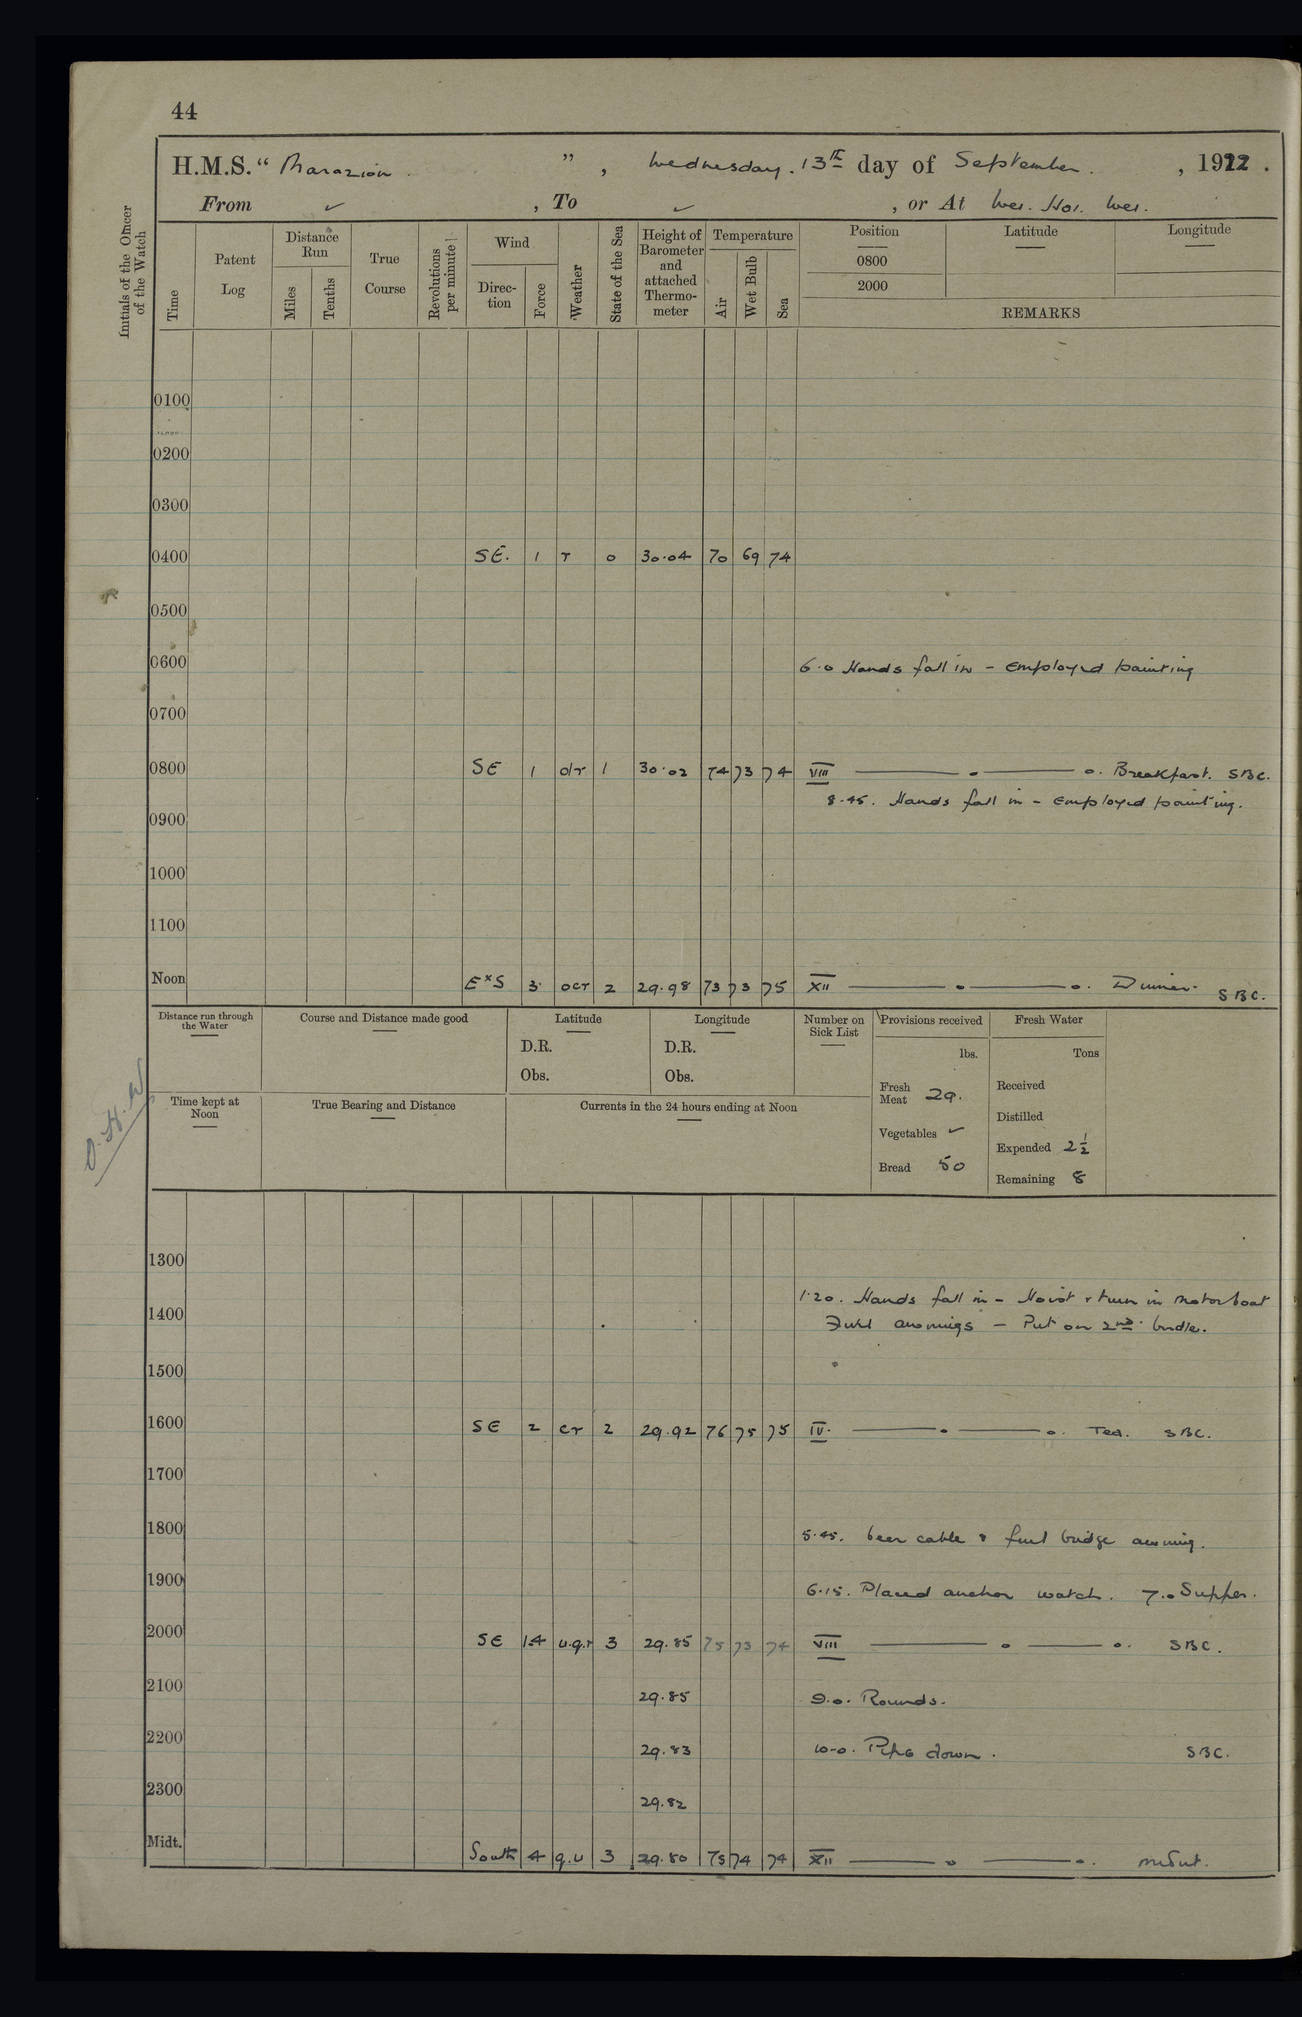 44
H.M.S. " Marazion . " , Wednesday . 13th day of September . , 1922 .
From ✓ , To ✓ , or At Wei . Hai . Wei .
Initials of the Officer of the Watch
Time
Patent Log
Distance Run
Miles
Tenths
True Course
Revolutions per minute
Wind
Direc- tion
Force
Weather
State of the Sea
Height of Barometer and attached Thermo- meter
Temperature
Air
Wet Bulb
Sea
Position
Latitude
Longitude
0800
2000
REMARKS
0100
0200
0300
0400 SE. 1 r 0 30.04 70 69 74
0500
0600 6.0 Hands fall in - employed painting
0700
0800 SE 1 or 1 30.02 74 73 74 VIII —— o —— o. Breakfast. SBC.
8.45. Hands fall in - employed painting.
0900
1000
1100
Noon ExS 3 ocr 2 29.98 73 73 75 XII —— o —— o. Dinner. SBC.
Distance run through the Water
Course and Distance made good
Latitude
D.R.
Obs.
Longitude
D.R.
Obs.
Number on Sick List
Provisions received
lbs.
Fresh Meat 29.
Vegetables ✓
Bread 50
Fresh Water
Tons
Received
Distilled
Expended 2½
Remaining 8
Time kept at Noon
True Bearing and Distance
Currents in the 24 hours ending at Noon
1300
1.20. Hands fall in - Hoist & turn in motorboat
1400 Furl awnings - Put on 2nd bridle.
1500
1600 SE 2 cr 2 29.92 76 75 75 IV. —— o —— o. Tea. SBC.
1700
1800 5.45. Veer cable & furl bridge awning.
1900 6.15. Placed anchor watch. 7.0 Supper.
2000 SE 14 u.q.r 3 29.85 75 73 74 VIII —— o —— o. SBC.
2100 29.85 9.0. Rounds.
2200 29.83 10-0. Pipe down. SBC.
2300 29.82
Midt. South 4 q.u 3 29.80 75 74 74 XII —— o —— o.